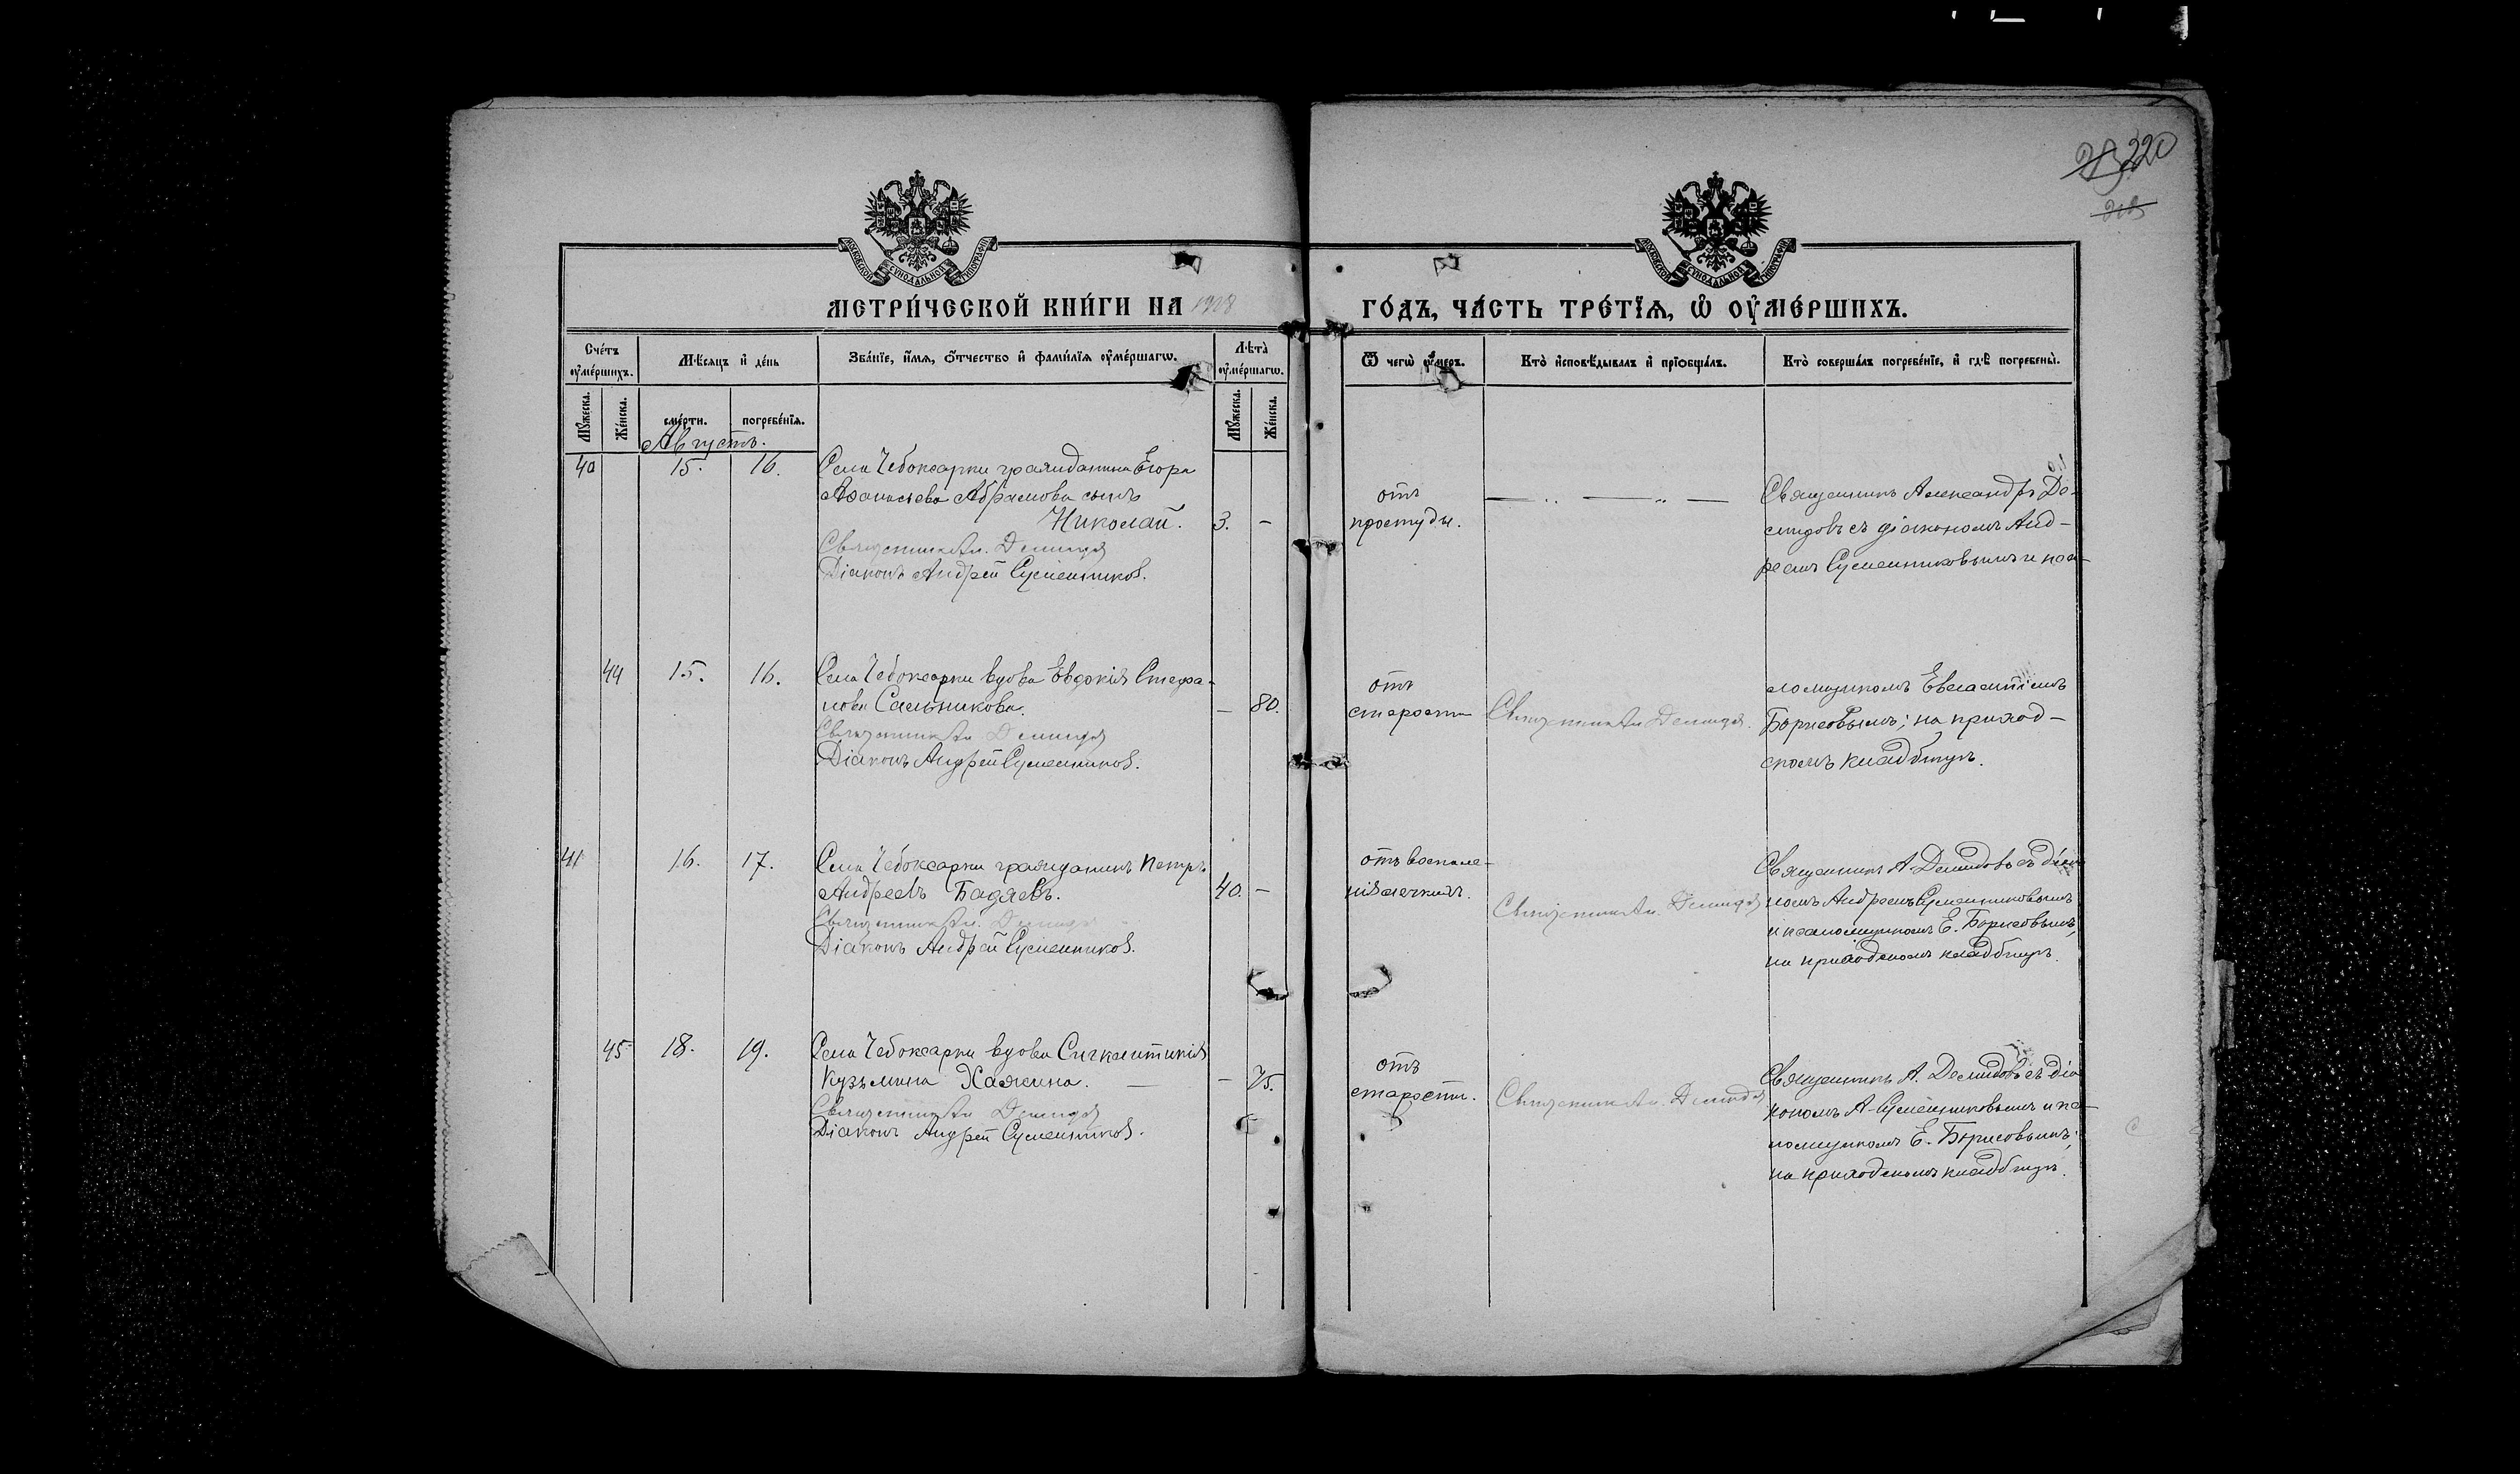 220
МЕТРИ́ЧЕСКОЙ КНИ́ГИ НА 1918
ГО́ДЪ, ЧА́СТЬ ТРЕ́ТЇѦ, Ѡ҆ ОУ҆МЕ́РШИХЪ.
Сче́тъ оу҆ме́ршихъ.
Мѣ́сяцъ и҆ де́нь
Зва́нїе, и҆́мѧ, ѻ҆́тчество и҆ фами́лїѧ оу҆ме́ршагѡ.
Лѣ́та̀ оу҆ме́ршагѡ.
Ѿ чегѡ̀ оу҆́меръ.
Кто̀ и҆сповѣ́дывалъ и҆ прїобща́лъ.
Кто̀ соверша́лъ погребе́нїе, и҆ гдѣ̀ погребены̀.
Мꙋ́жеска.
Же́нска.
сме́рти.
погребе́нїѧ.
Мꙋ́жеска.
Же́нска.
Августъ.
40 15. 16.
Села Чебоксарки гражданина Егора
Аѳанасьева Абрамова сынъ
Николай. 3. –
Священникъ Ал. Демидов
Діаконъ Андрей Сусленников.
отъ
простуды.
Священникъ Александръ Де-
мидовъ съ діакономъ Анд-
реемъ Сусленниковымъ и пса-
44 15. 16.
Села Чебоксарки вдова Евдокія Стефа-
нова Сальникова. – 80.
Священникъ Ал. Демидов
Діаконъ Андрей Сусленников.
отъ
старости
Священникъ Ал. Демидов.
ломщикомъ Евлампіемъ
Борисовымъ; на приход-
скомъ кладбищѣ.
41 16. 17.
Села Чебоксарки гражданинъ Петръ
Андреевъ Бадяевъ. 40. –
Священникъ Ал. Демидов
Діаконъ Андрей Сусленников.
отъ воспале-
нія легкихъ.
Священникъ Ал. Демидов
Священникъ А. Демидовъ съ діако
номъ Андреемъ Сусленниковымъ
и псаломщикомъ Е. Борисовымъ,
на приходскомъ кладбищѣ.
45 18. 19.
Села Чебоксарки вдова Сигклитикія
Кузьмина Хажина. – 75.
Священникъ Ал. Демидов
Діаконъ Андрей Сусленников.
отъ
старости.
Священникъ Ал. Демидов
Священникъ А. Демидовъ съ діа
кономъ А. Сусленниковымъ и пса-
ломщикомъ Е. Борисовымъ;
на приходскомъ кладбищѣ.